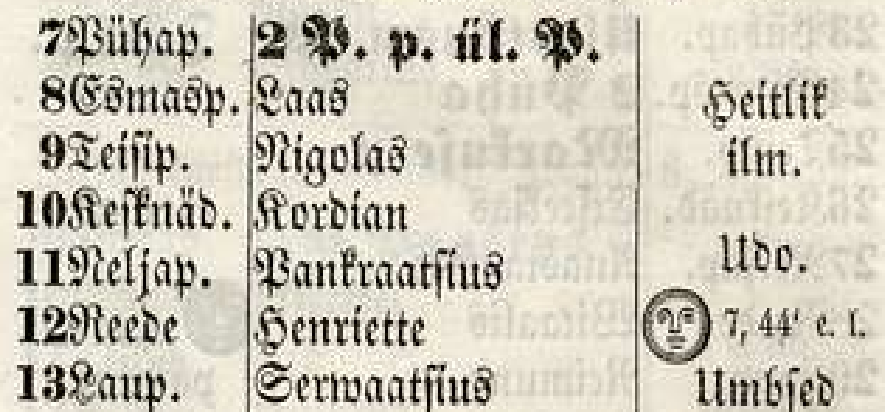 7 Pühap. 2 P. p. ül. P.
8 Esmasp. Laas Heitlik
9 Teisip. Nigolas ilm.
10 Kesknäd. Kordian
11 Neljap. Pankraatsius Udo.
12 Reede Henriette 7, 44' e. l.
13 Laup. Serwaatsius Umbsed